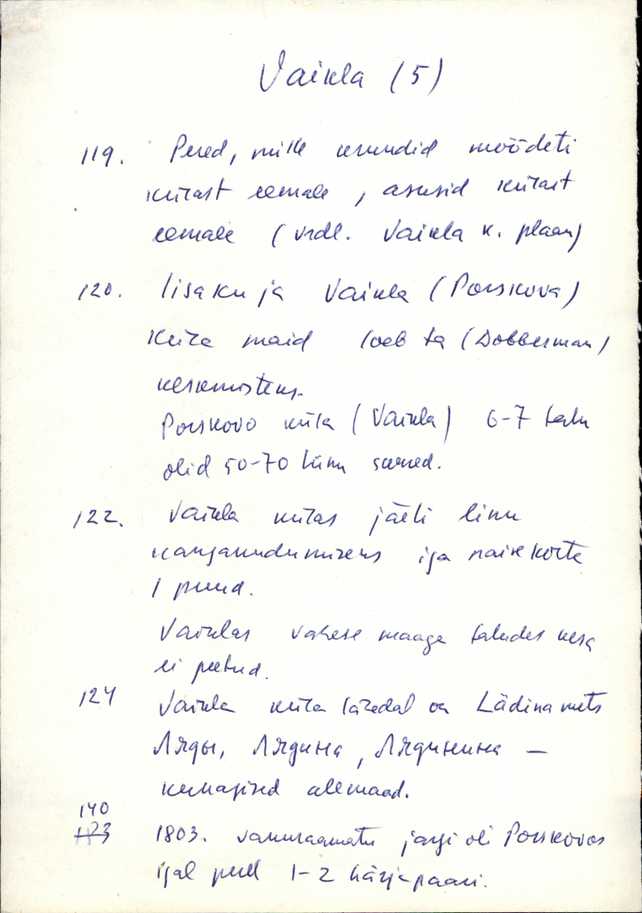 Vaikla (5)
119. Pered, mille krundid mõõdeti
külast eemale, asusid külast
eemale (vrdl. Vaikla k. plaan)
120. Iisaku ja Vaikla (Porskova)
küla maid loeb ta (Dobberman)
keskmisteks.
Porskovo küla (Vaikla) 6-7 talu
olid 50-70 tiinu suured.
122. Vaikla külas jäeti linu
kangakudumiseks iga naise kohta
1 puud.
Vaiklas vähese maaga taludes kesa
ei peetud.
124 Vaikla küla lähedal on Lädina mets
Ляды, Лядина, Лядинина —
kunagised alemaad.
140
123 1803. vakuraamatu järgi oli Porskovos
igal perel 1-2 härjapaari.